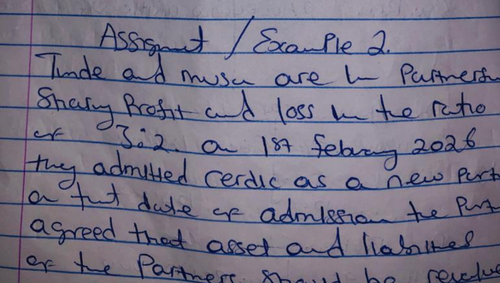 Assignment / Example 2.
Tunde and musa are in Partners
Sharing Profit and loss in the ratio
of 3:2. on 1st february 2026
they admitted cerdic as a new Part
on that date of admission the Part
agreed that asset and liabilities
of the Partners should be